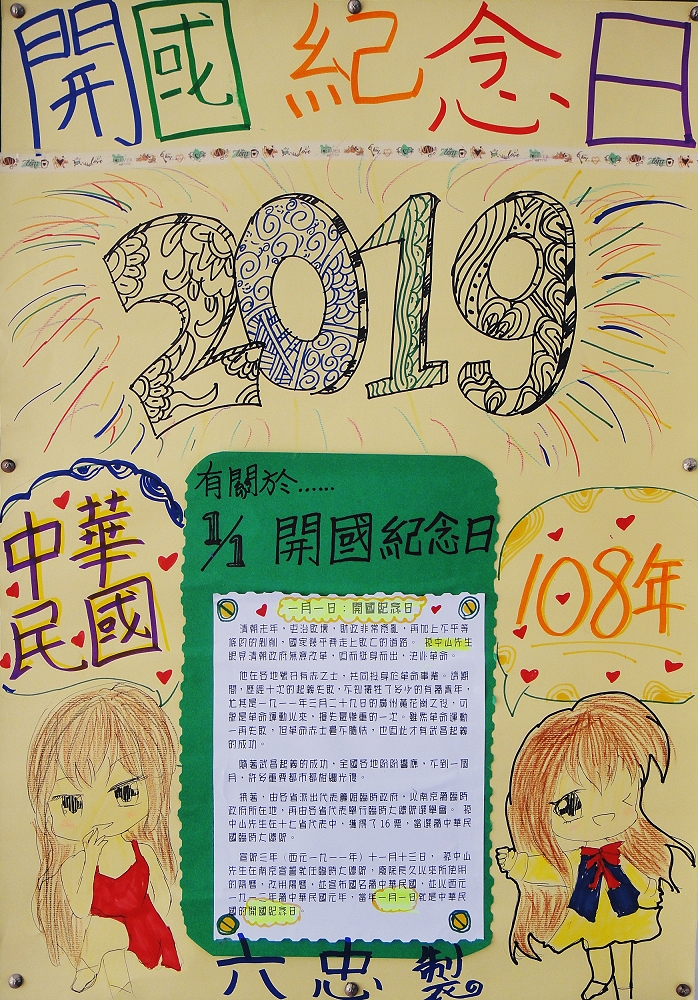 開國紀念日
2019
中華
民國
有關於......
1/1 開國紀念日
108年
一月一日：開國紀念日
清朝末年，吏治敗壞，財政非常紊亂，再加上不平等
條約的剝削，國家幾乎要走上敗亡的道路。 孫中山先生
眼見清朝政府無意改革，因而挺身而出，決心革命。
他在各地號召有志之士，共同投身於革命事業。這期
間，歷經十次的起義失敗，不知犧牲了多少的有為青年，
尤其是一九一一年三月二十九日的廣州黃花崗之役，可
說是革命運動以來，損失最慘重的一次。雖然革命運動
一再失敗，但革命志士毫不膽怯，也因此才有武昌起義
的成功。
隨著武昌起義的成功，全國各地紛紛響應，不到一個
月，許多重要都市都相繼光復。
接著，由各省派出代表籌組臨時政府，以南京為臨時
政府所在地，再由各省代表舉行臨時大總統選舉會。 孫
中山先生在十七省代表中，獲得了16票，當選為中華民
國臨時大總統。
宣統三年（西元一九一一年）十一月十三日， 孫中山
先生在南京宣誓就任臨時大總統，廢除長久以來所使用
的陰曆，改用陽曆，並宣布國名為中華民國，並以西元
一九一二年為中華民國元年，當年一月一日就是中華民
國的開國紀念日。
六忠製